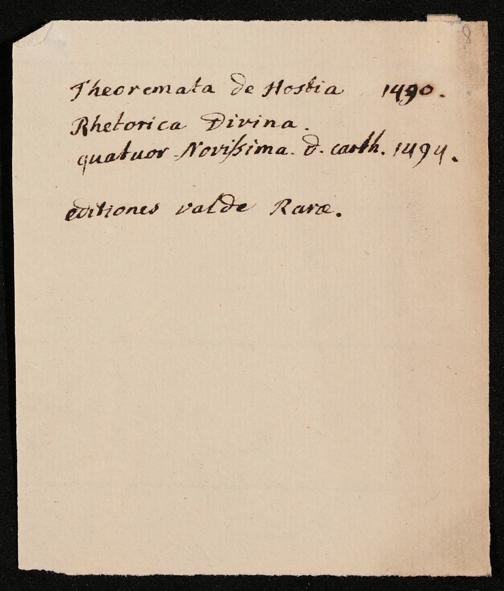 8
Theoremata de Hostia 1490.
Rhetorica Divina.
quatuor Novissima. d. carth. 1494.
editiones valde Raræ.